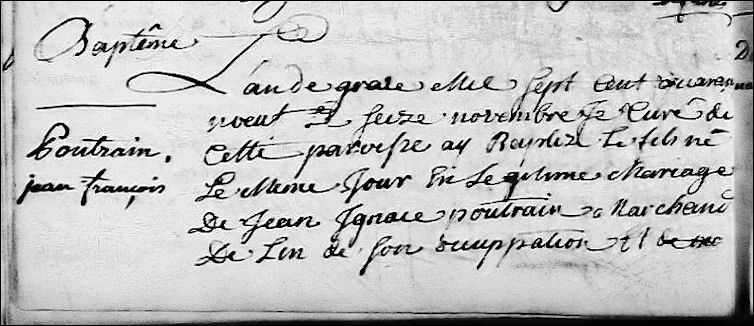 Baptême
L'an de grace Mil Sept Cent quaran
noeuf Le seize novembre Je Curé de
Poutrain. Cette paroisse ay Baptizé Le fils né
jean françois Le Meme Jour En Legitime Mariage
De Jean Ignace poutrain Marchand
De Lin de son occuppation et de